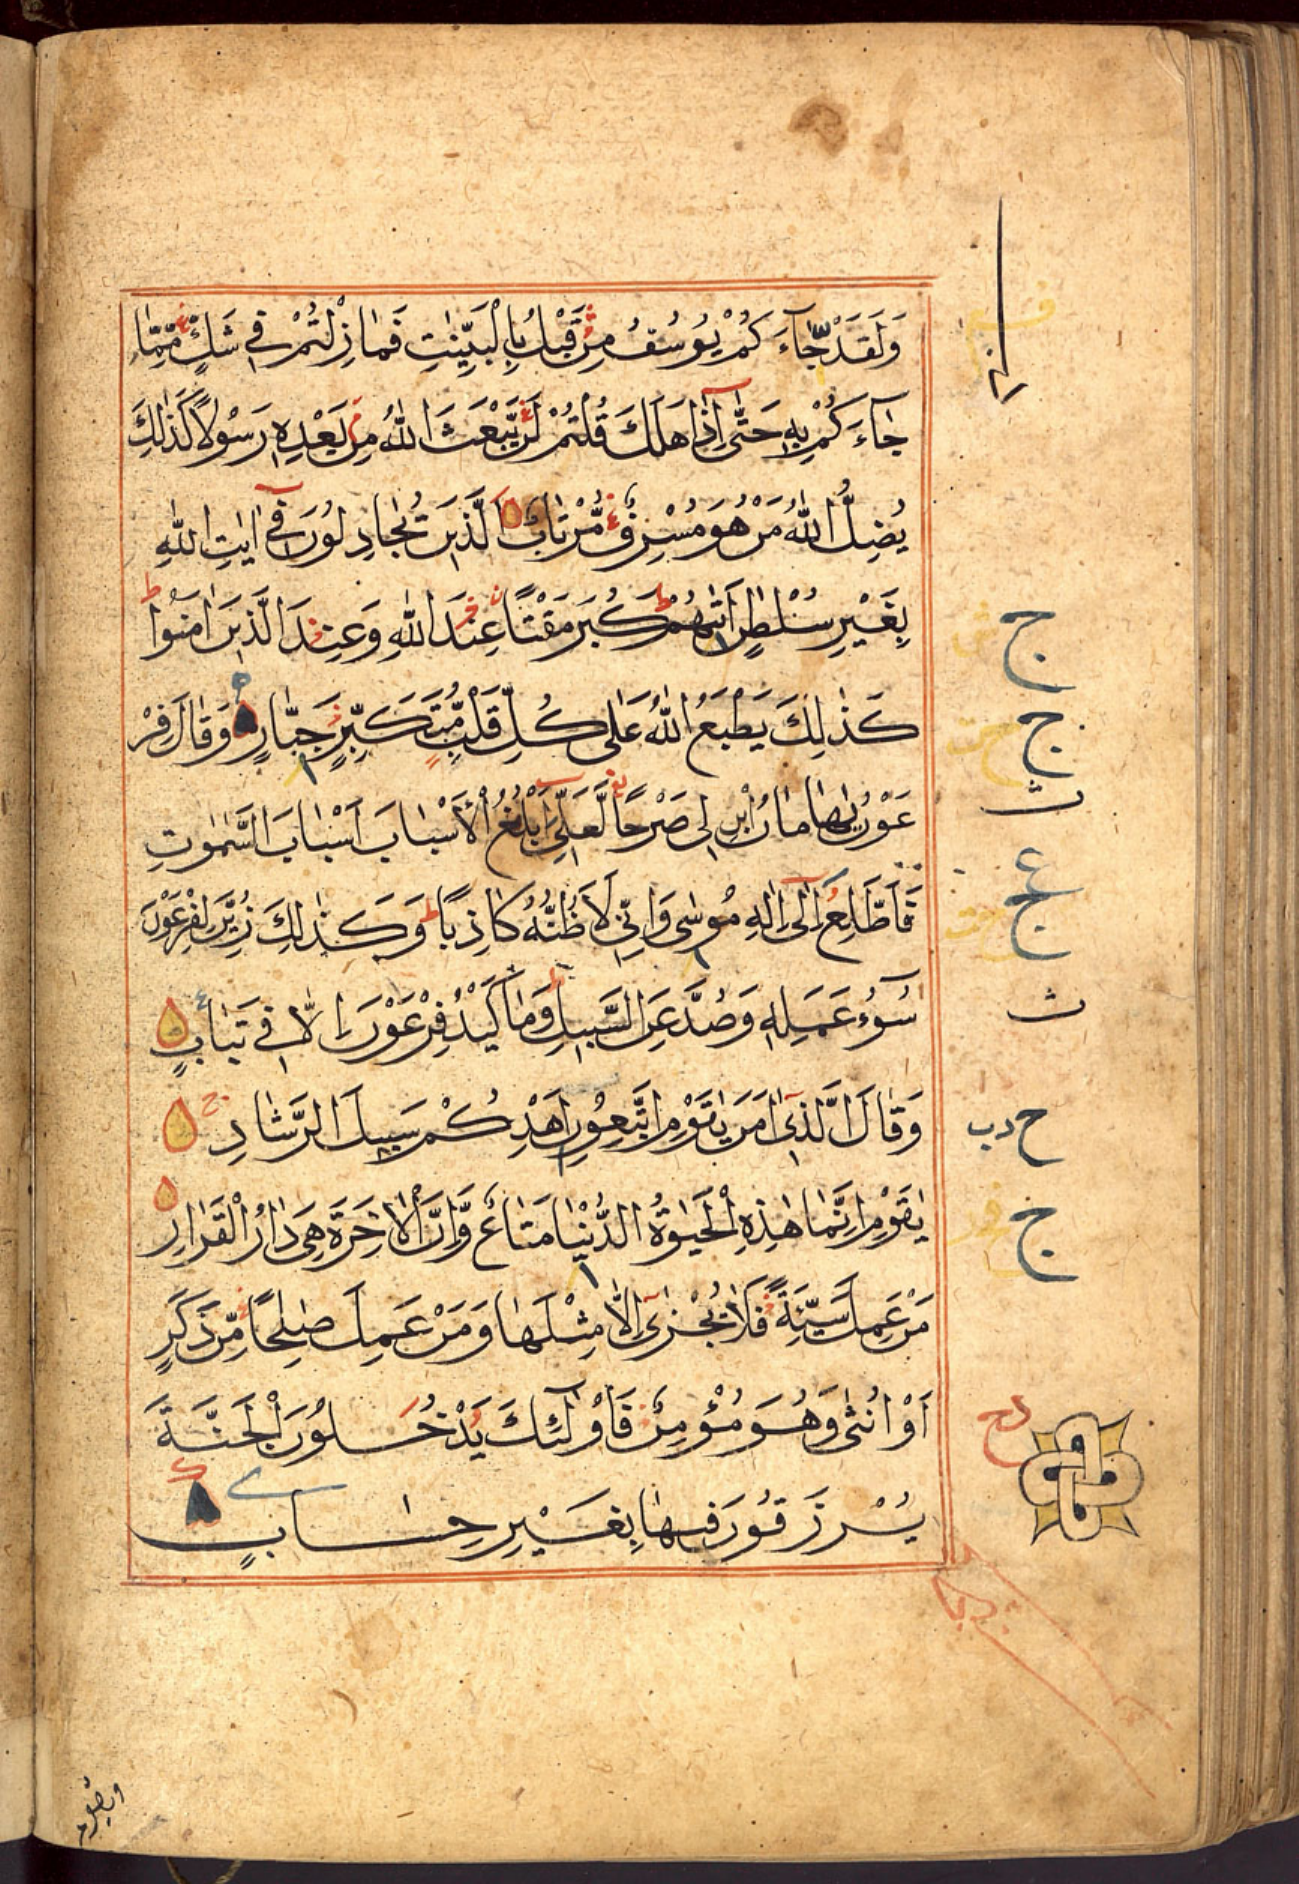 وَلَقَدْ جَّاءَكُمْ يُوسُفُ مِنْ قَبْلُ بِالْبَيِّنٰتِ فَمَا زِلْتُمْ فِي شَكٍّ مِّمَّا
جَاءَكُمْ بِهٖ حَتّٰى اِذَا هَلَكَ قُلْتُمْ لَنْ يَّبْعَثَ اللّٰهُ مِنْ بَعْدِهٖ رَسُوْلًا كَذٰلِكَ
يُضِلُّ اللّٰهُ مَنْ هُوَ مُسْرِفٌ مُّرْتَابٌ الَّذِيْنَ يُجَادِلُوْنَ فِي اٰيٰتِ اللّٰهِ
بِغَيْرِ سُلْطٰنٍ اَتٰىهُمْ كَبُرَ مَقْتًا عِنْدَ اللّٰهِ وَعِنْدَ الَّذِيْنَ اٰمَنُوْا
كَذٰلِكَ يَطْبَعُ اللّٰهُ عَلٰى كُلِّ قَلْبِ مُتَكَبِّرٍ جَبَّارٍ وَقَالَ فِرْ
عَوْنُ يٰهَامَانُ ابْنِ لِي صَرْحًا لَّعَلِّيْ اَبْلُغُ الْاَسْبَابَ اَسْبَابَ السَّمٰوٰتِ
فَاَطَّلِعَ اِلٰى اِلٰهِ مُوْسٰى وَاِنِّيْ لَاَظُنُّهٗ كَاذِبًا وَكَذٰلِكَ زُيِّنَ لِفِرْعَوْنَ
سُوْٓءُ عَمَلِهٖ وَصُدَّ عَنِ السَّبِيْلِ وَمَا كَيْدُ فِرْعَوْنَ اِلَّا فِيْ تَبَابٍ
وَقَالَ الَّذِيْ اٰمَنَ يَاقَوْمِ اتَّبِعُوْنِ اَهْدِكُمْ سَبِيْلَ الرَّشَادِ
يٰقَوْمِ اِنَّمَا هٰذِهِ الْحَيٰوةُ الدُّنْيَا مَتَاعٌ وَّاِنَّ الْاٰخِرَةَ هِيَ دَارُ الْقَرَارِ
مَنْ عَمِلَ سَيِّئَةً فَلَا يُجْزٰى اِلَّا مِثْلَهَا وَمَنْ عَمِلَ صٰلِحًا مِّنْ ذَكَرٍ
اَوْ اُنْثٰى وَهُوَ مُؤْمِنٌ فَاُولٰٓئِكَ يَدْخُلُوْنَ الْجَنَّةَ
يُرْزَقُوْنَ فِيْهَا بِغَيْرِ حِسَابٍ
ج
ج
ث
ع
ج
ث
ح دب
ج